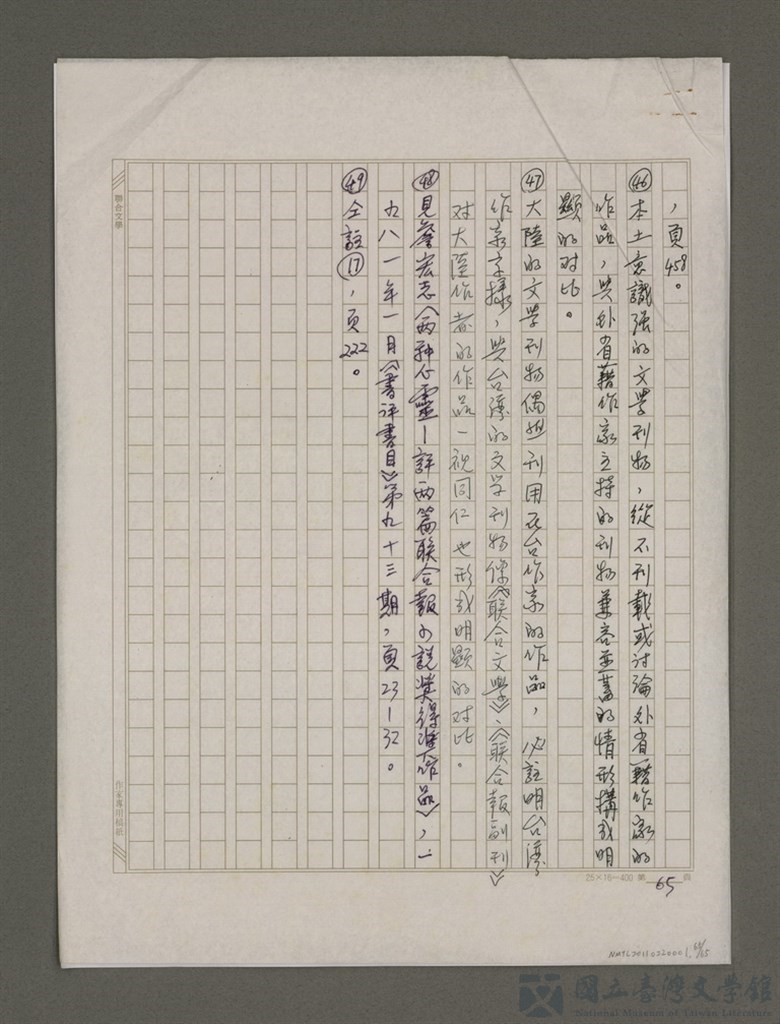 ，頁458。
㊻本土意識強的文學刊物，從不刊載或討論外省籍作家的
作品，與外省籍作家主持的刊物兼容並蓄的情形搆成明
顯的对比。
㊼大陸的文學刊物偶然刊用在台作家的作品，必註明台湾
作家字樣，與台湾的文学刊物像《聯合文學》、《聯合報副刊》
对大陸作者的作品一視同仁也形成明顯的对比。
㊽見詹宏志〈兩种心靈—評兩篇聯合報小說獎得獎作品〉，一
九八一年一月《書评書目》第九十三期，頁23—32。
㊾仝註⑰，頁222。
聯合文學
作家專用稿紙
25×16＝400 第 65 頁
NMTL20110320001 65/65
國立臺灣文學館
National Museum of Taiwan Literature